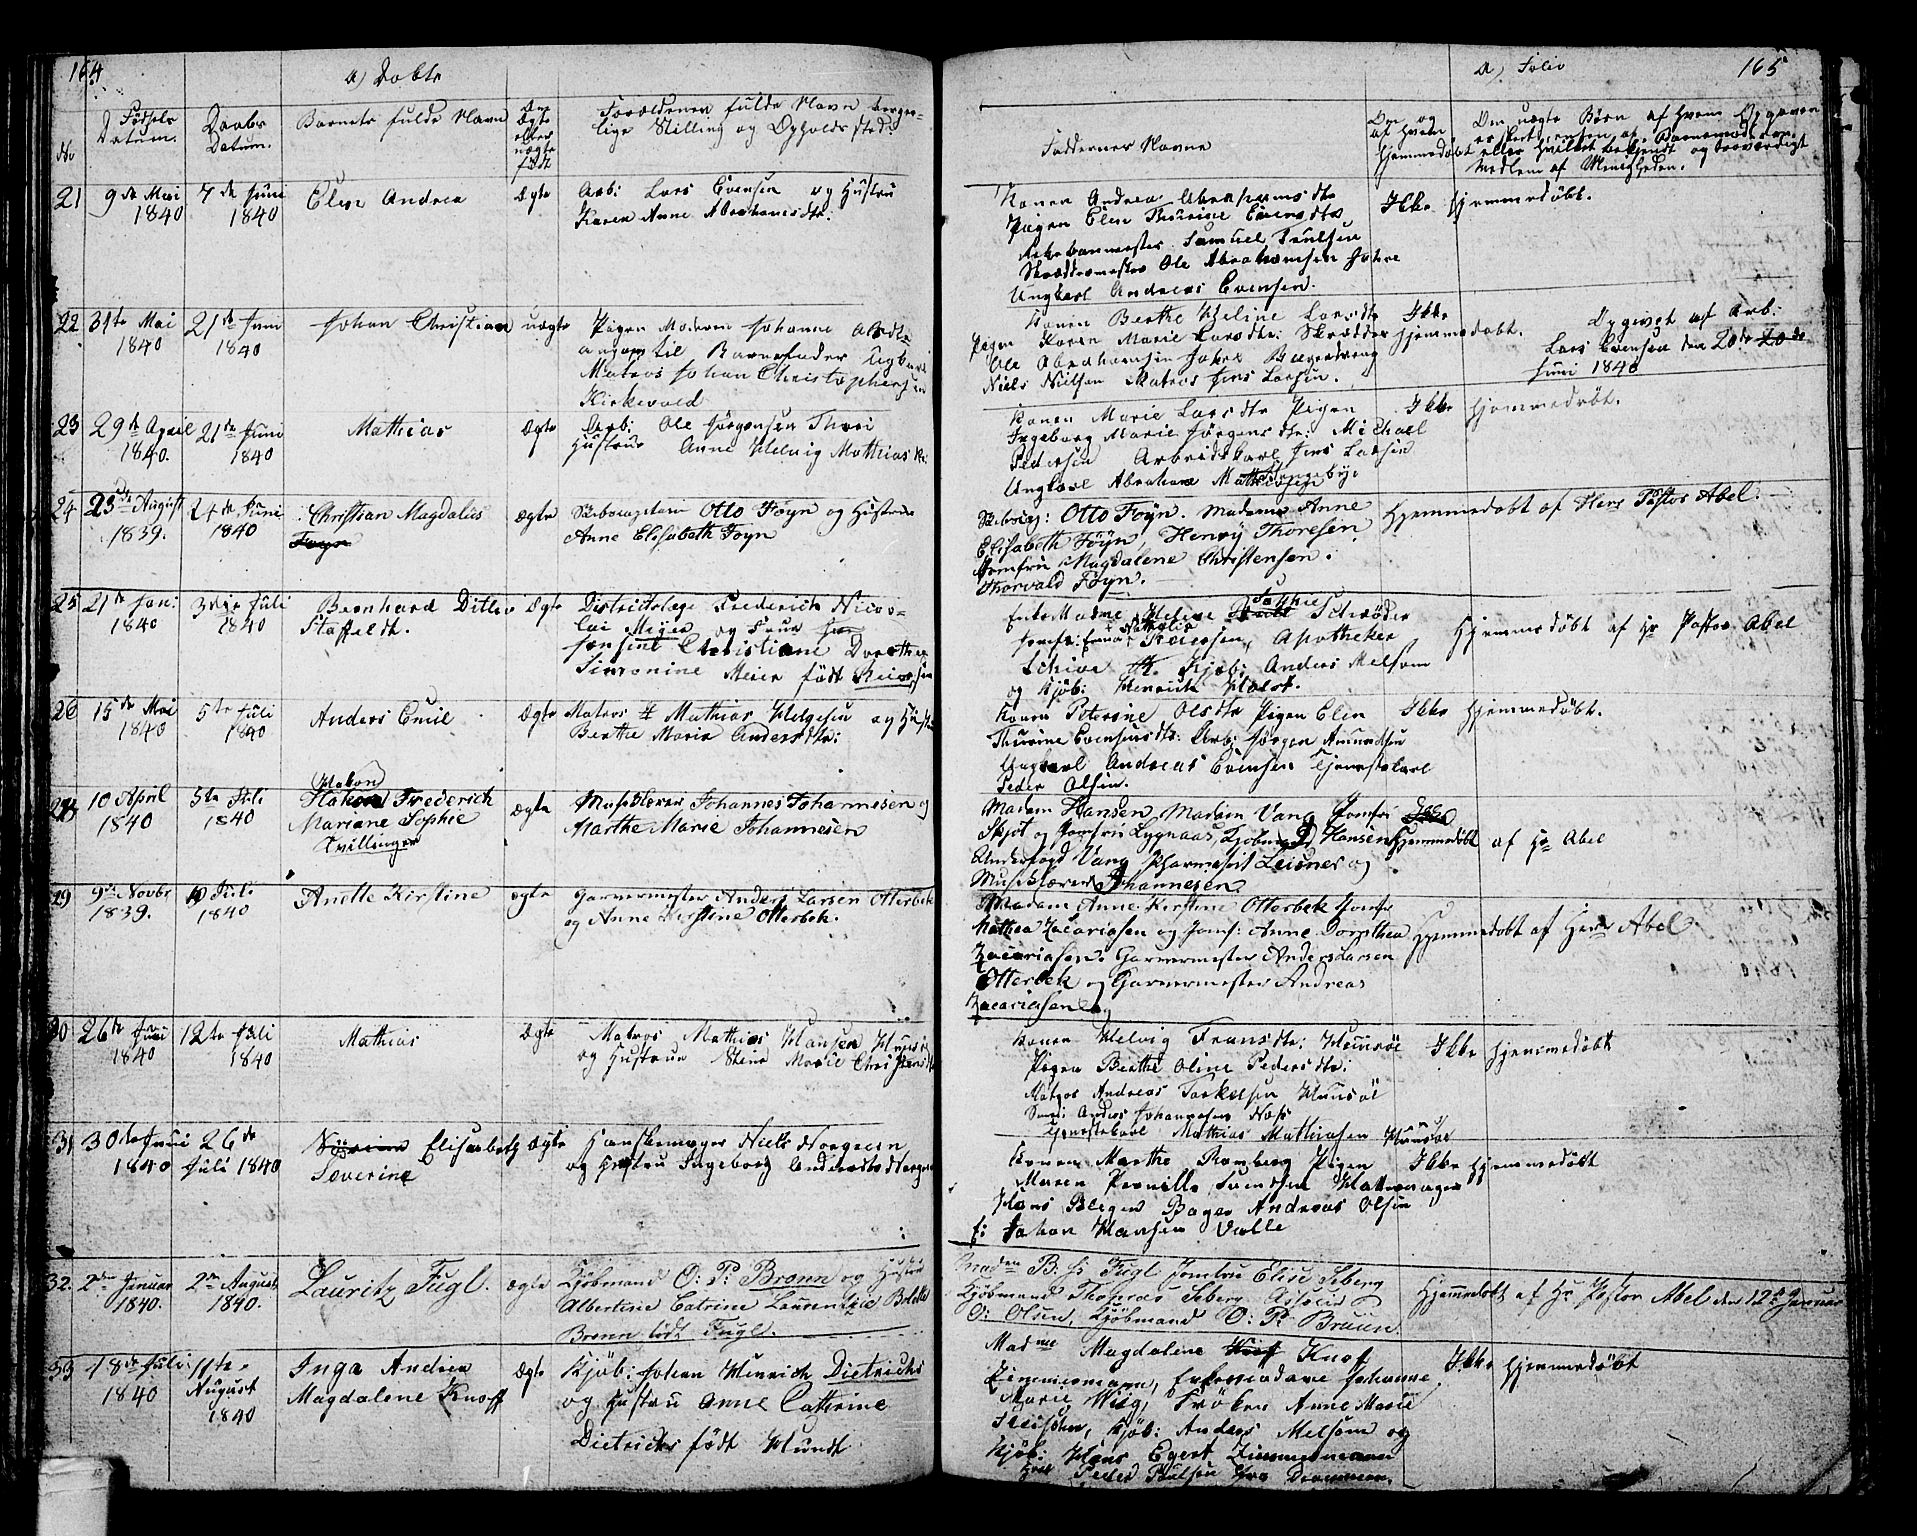 164
a) Døbte
No
Fødsels Datum.
Daabs Datum.
Barnets fulde Navn
Om Ægte eller uægte født
Forældrenes fulde Navn borger-
lige Stilling og Opholds sted.
21 9de Mai 1840
7de Juni 1840
Elen Andrea
Ægte
Arb: Lars Evensen og Hustru
Karen Anne Abrahamsdtr.
22 31te Mai 1840
21de Juni 1840
Johan Christian
uægte
Pigen Moderen Johanne
angav til Barnefader Ugkarl
Matros Johan Christophersen
Kirkevold
23 29de April 1840.
21de Juni 1840
Mathias
Ægte
Arb: Ole Jørgensen Thori
Hustrue Anne Helvig Mathias
24 23de August 1839.
24de Juni 1840
Christian Magdalus
Foyn
Ægte
Otto Föyn og Hustrue
Anne Elisabeth Foyn
25 21de Jan: 1840
3die Juli 1840
Bernhard Ditlev
Staffeldt.
Ægte
Districtslæge Frederich Nico-
lai Meyer og Frue
Jensine Christiane Dorothea
Simonine Meier født
26 15de Mai 1840
5te Juli 1840
Anders Emil
Ægte
Matros Mathias Helgesen og Hust
Berthe Maria Andersdtr:
10 April 1840
5te Juli 1840
Hakon
Hakon Frederich
Mariane Sophie
Tvillinger
Ægte
Johannes Johannesen og
Marthe Marie Johannesen
29 9de Novbr 1839.
Juli 1840
Anette Kirstine
Ægte
Garvermester Anders Larsen Otterbek
og Anne Kirstine Otterbek.
30 26de Juni 1840
12te Juli 1840
Mathias
Ægte
Matros Mathias Hansen
og Hustrue Stine Marie
31 30de Juni 1840
26de Juli 1840
Elisabeth
Severine
Ægte
Handskemager Niels Norgreen
og Hustru Ingeborg
32. 2den Januar 1840.
2den August 1840.
Lauritz Fugl.
Ægte
Kjöbmand O: P: Bronn og Hustru
Albertine Catrine Laurentzia Bolette
Bronn født Fugl.
33 18de Juli 1840
11te August 1840
Inga Andrea
Magdalene Knoff
Ægte
Kjøb: Johan Hinrich Dietrichs
og Hustru Anne Cathrine
Dietrichs født Hundt
a) Folio
165
Faddernes Navne
Om og af Hvem Hjemmedøbt
Om uægte Børn af Hvem Opgaven
er skeet, enten af Barnemoderen
eller hvilket bekjendt og troværdigt
Medlem af Menigheden.
Konen Andrea Abrahamsdtr
Pigen Elen Thurine Evensdtr
Samuel Paulsen
Skræddermester Ole Abrahamsen
Ungkarl Andreas Evensen.
Ikke Hjemmedøbt.
Konen Berthe Heline Larsdtr
Pigen Karen Marie Larsdtr: Skrædder
Ole Abrahamsen
Niels Nielsen Matros Jens Larsen.
Ikke Hjemmedøbt.
Opgivet af Arb:
Lars Evensen den 20de 20de
Juni 1840
Konen Marie Larsdtr Pigen
Ingeborg Marie Jørgensdtr: Michael
Pedersen Arbeidskarl Jens Larsen
Ungkarl Abraham
Ikke Hjemmedøbt.
Otto Foyn. Madame Anne
Elisabeth Föyn, Henry Thoresen
Jomfru Magdalene Christensen.
Thorvald Föyn.
Hjemmedøbt af Herr Pastor Abel.
Helene Sophie Schrøder
Apotheker
Kjøb: Anders Melsom
og Kjøb: Henrich Holst.
Hjemmedøbt af Hr Pastor Abel
Konen Petersine Olsdtr Pigen Elen
Thurine Evensdtr: Arb: Jørgen Amundsen
Ungkarl Andreas Evensen Tjenestekarl
Peder Olsen.
Ikke Hjemmedøbt.
Madam Hansen, Madam Vang Jomfru
Skjøt og Jomfru Lygnaas, Kjøbmand Hansen
Underfogd Vang Pharmaceut Leisner og
Johannesen.
Hjemmedøbt af Hr Abel
Madam Anne Kirstine Otterbek Jomfr
Mathea Zacariasen og Jomf: Anne Dorothea
Zacariasen. Garvermester Anders Larsen
Otterbek og Garvermester Andreas
Zacariasen
Hjemmedøbt af Herr Abel
Konen Helvig Fransdtr:
Pigen Berthe Oline Pedersdtr:
Matros Andreas Torkelsen
Anders Johannesen Næs
Tjenestekarl Mathias Mathiasen
Ikke Hjemmedøbt
Konen Marthe Romberg Pigen
Maren Pernille Svendsen Hattemager
Hans Blegen Bager Andreas Olsen
Johan Hansen Valle
Ikke Hjemmedøbt
B. H. Fugl Jomfru Elise Seberg
Kjöbmand Thomas Seberg
O: Olsen, Kjöbmand O: P: Bruun
Hjemmedøbt af Hr Pastor Abel den 12te Januar
Madme Magdalene Knof
Zimmermann, Johanne
Marie Wiig, Frøken Anne Marie
Kjøb: Anders Melsom og
Kjøb: Hans Egert Zimmermann
Ikke Hjemmedøbt